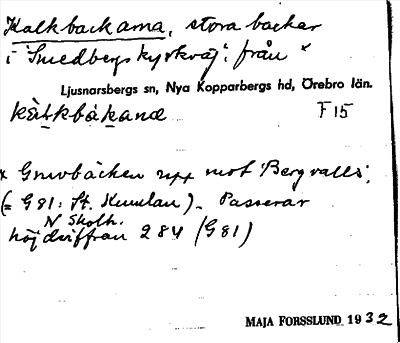 Kalkbackarna, stora backar
i 'Smedbergskyrkväg'. från x
Ljusnarsbergs sn, Nya Kopparbergs hd, Örebro län.
F 15
x Gruvbäcken upp mot 'Bergvalls',
(= G 81: St. Kumlan). Passerar
N Skoth.
höjdsiffran 284 (G81)
MAJA FORSSLUND 1932